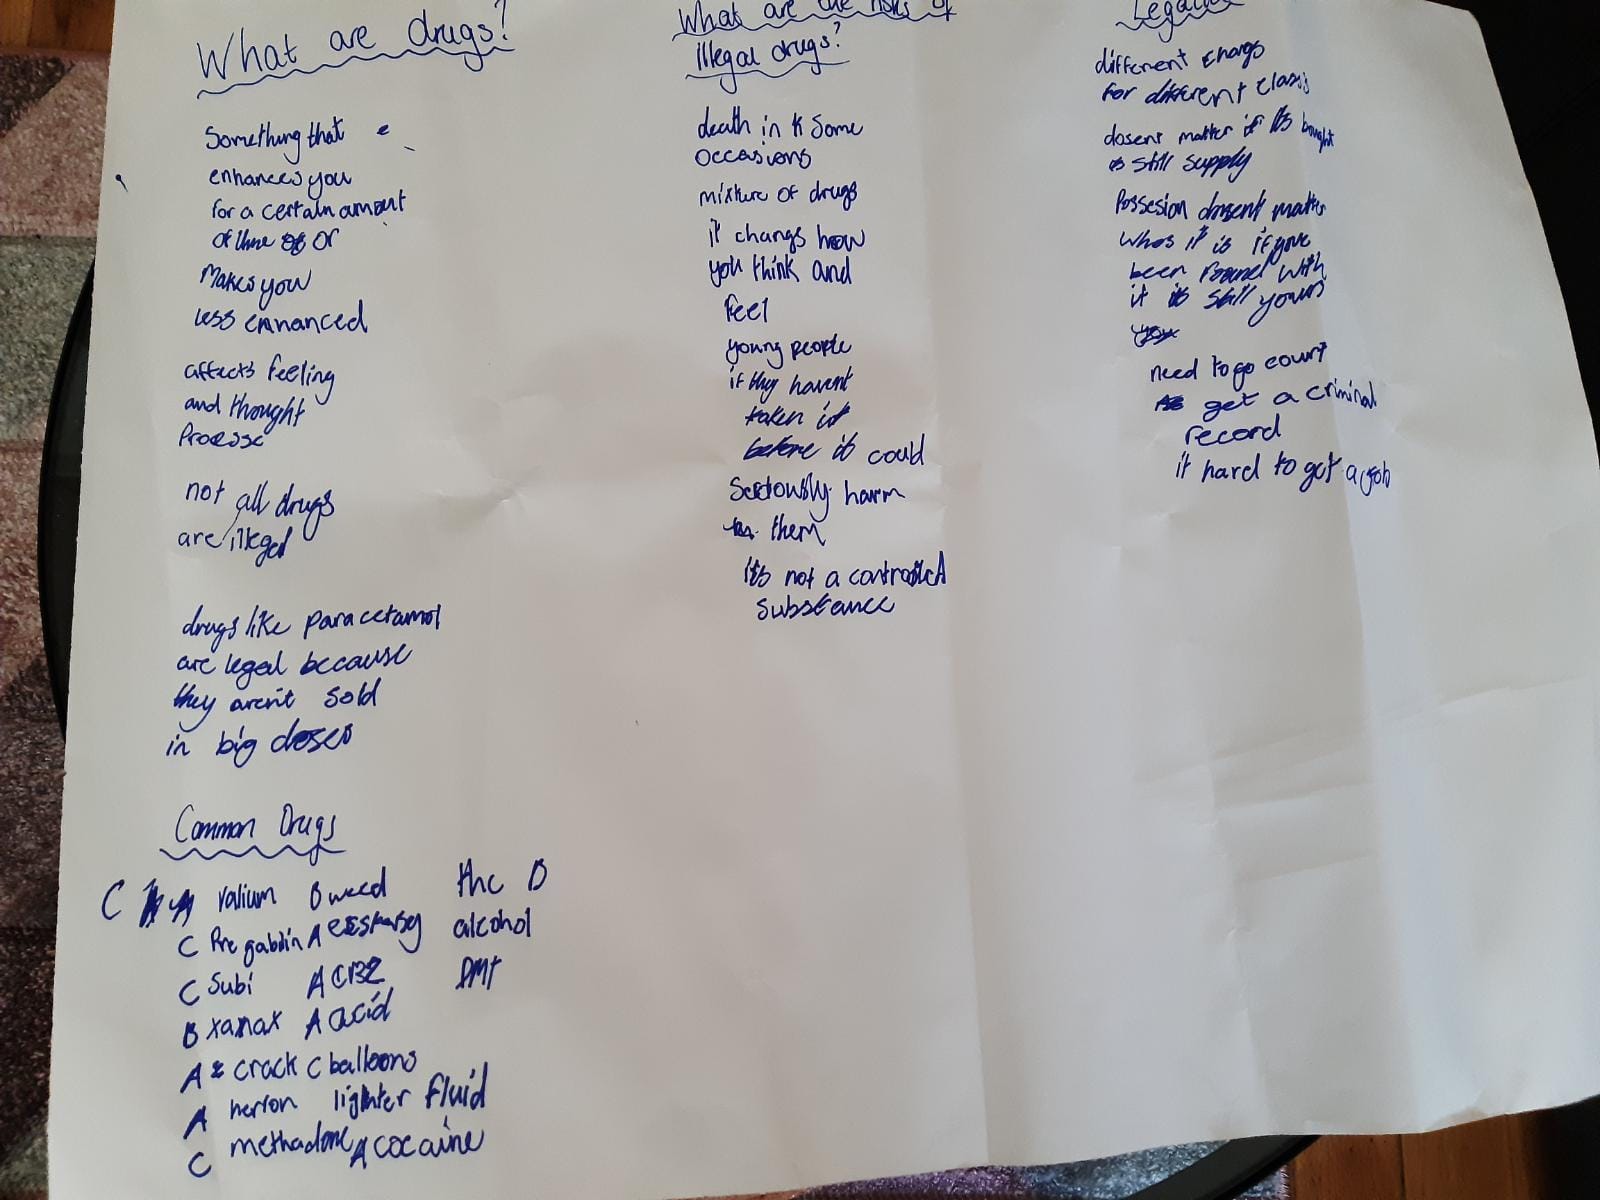 What are drugs?
Something that e
enhances you
for a certain amount
of time or
Makes you
less enhanced
affects feeling
and thought
Processe
not all drugs
are illegal
drugs like paracetamol
are legal because
they arent sold
in big doses
Common Drugs
C valium B weed the B
C Pregablin A alcohol
C Subi A DMT
B xanax A acid
A crack C balloons
A herion lighter fluid
C methadone A cocaine
What are the risks of
illegal drugs?
death in some
occasions
mixture of drugs
it changs how
you think and
feel
young people
if they havent
taken it
before it could
Seriously harm
them
it's not a
substance
different chargs
for different class
dosent matter if its bought
is still supply
Possesion dosent matter
whos it is if youve
been found with
it is still yours
need to go court
get a criminal
record
it hard to get a job